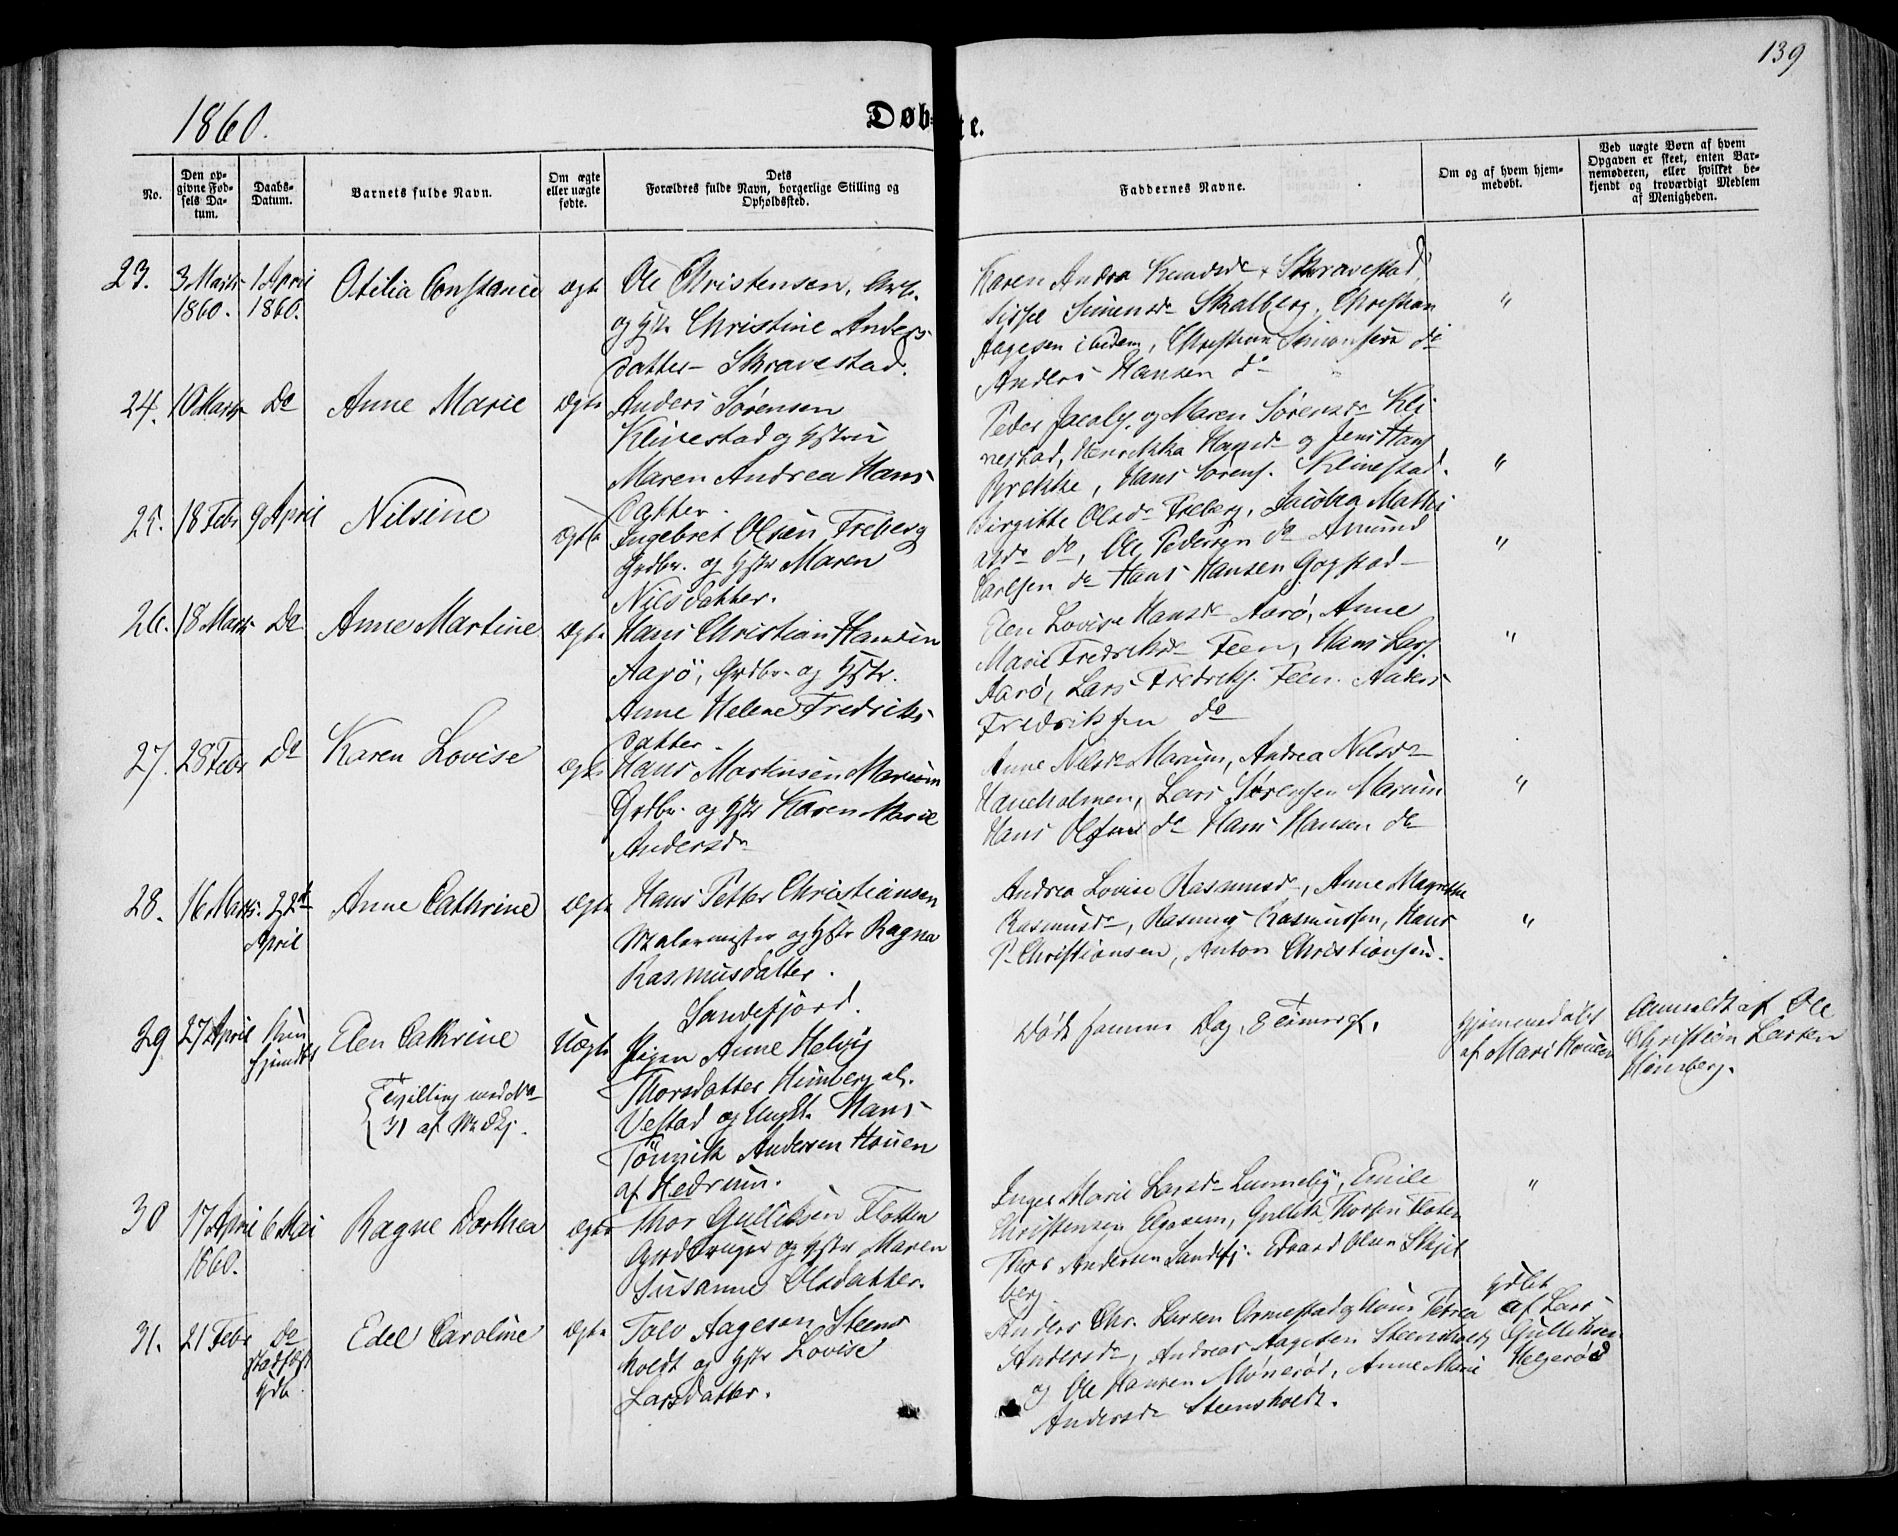 139
1860.
Døbte.
No.
Den opgivne Fødsels Datum.
Daabs-Datum.
Barnets fulde Navn.
Om ægte eller uægte fødte.
Dets Forældres fulde Navn, borgerlige Stilling og Opholdssted.
Faddernes Navne.
Om og af hvem hjemmedøbt.
Ved uægte Børn af hvem Opgaven er skeet, enten Barnemoderen, eller hvilket bekjendt og troværdigt Medlem af Menigheden.
23. 3 Marts 1 April Otilia Constance ægte Ole Christensen,
1860. 1860. og Hstr Christine Anders-
datter Skravestad.
Karen Andrea Knudsdr Skravestad,
Sissel Simensdr Skalberg, Christian
Aagesen ibidem, Christian Simonsen do
Anders Hansen do
"
24. 10 Marts Do Anne Marie Ægte Anders Sørensen
Klinestad og Hstru
Maren Andrea Hans-
datter.
Peder Jacobs. og Maren Sørensdr Kli-
nestad, Henrikka Hansdr og Jens Hans.
Brekke, Hans Sørens. Klinestad.
"
25. 18 Febr 9 April Nilsine Ægte Ingebret Olsen Freberg
Grdbr. og Hstr Maren
Nilsdatter.
Birgitte Olsdr Freberg, Jacobea Mathi-
asdr do, Ole Pedersen do Amund
Carlsen do Hans Hansen Gogstad
"
26. 18 Marts Do Anne Martine Ægte Hans Christian Hansen
Aarö, Grdbr. og Hstr.
Anne Helene Fredriks-
datter.
Elen Lovise Hansdr Aarö, Anne
Marie Fredriksdr Feen, Hans Lars.
Aarö, Lars Fredriks. Feen. Anders
Fredriksen do
"
27. 28 Febr Do Karen Lovise Ægte Hans Martinsen Marum
Grdbr. og Hstr Karen Marie
Andersdr
Anne Nilsdr Marum, Andrea Nilsdr
Haneholmen, Lars Sørensen Marum
Hans Olsen do Hans Hansen do
"
28. 16 Marts. 22de Anne Cathrine Ægte Hans Petter Christiansen
April Malermester og Hstr Ragna
Rasmusdatter.
Sandefjord.
Andrea Lovise Rasmusdr, Anne Magrethe
Rasmusdr, Rasmus Rasmussen, Hans
P. Christiansen, Anton Christiansen.
"
29 27 April Kun Elen Cathrine Uægte Pigen Anne Helvig
hjemdbt Thorsdatter Himberg al.
Vestad og Ungk. Hans
Tönnik Andersen Houen
af Hedrum.
Tvilling med No
31 af Mdkj.
Døde samme Dag, 8 Timer gl.
Hjemmedøbt
af Mari Houen
Anmeldt af Ole
Christian Larsen
Himberg.
30 17 April 6 Mai Ragne Dorthea Ægte Thor Gulliksen Flotten
1860. Gaardbruger og Hstr Maren
Susanne Olsdatter.
Inger Marie Larsdr Lunneby, Emile
Christensen Elgesem, Gullik Thorsen Floten
Thor Andersen Sandefj. Edvard Olsen Skjel-
berg
"
31. 21 Febr Do Edel Caroline Ægte Tolv Aagesen Steens-
stadfæst holdt og Hstr Lovise
Hdb. Larsdatter.
Anders Chr. Larsen Ormestad og Kone Petrea
Andersdr, Andreas Aagesen Steensholdt
og Ole Hansen Mønerød, Anne Marie
Andersdr Steensholdt.
Hjdbt
af Lars
Gulliksen
Helgerød